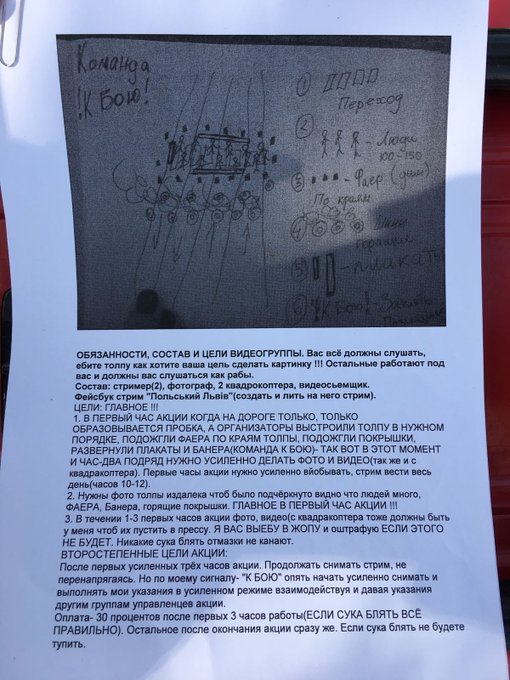 Команда
!К Бою!
① Переход
② - Люди
100-150
③ - Фаер (дим)
По краям
④ Шины
горящие
⑤ - плакаты
⑥ !К Бою! - Занять
ОБЯЗАННОСТИ, СОСТАВ И ЦЕЛИ ВИДЕОГРУППЫ. Вас всё должны слушать,
ебите толпу как хотите ваша цель сделать картинку !!! Остальные работают под
вас и должны вас слушаться как рабы.
Состав: стример(2), фотограф, 2 квадрокоптера, видеосьемщик.
Фейсбук стрим "Польський Львів"(создать и лить на него стрим).
ЦЕЛИ: ГЛАВНОЕ !!!
1. В ПЕРВЫЙ ЧАС АКЦИИ КОГДА НА ДОРОГЕ ТОЛЬКО, ТОЛЬКО
ОБРАЗОВЫВАЕТСЯ ПРОБКА, А ОРГАНИЗАТОРЫ ВЫСТРОИЛИ ТОЛПУ В НУЖНОМ
ПОРЯДКЕ, ПОДОЖГЛИ ФАЕРА ПО КРАЯМ ТОЛПЫ, ПОДОЖГЛИ ПОКРЫШКИ,
РАЗВЕРНУЛИ ПЛАКАТЫ И БАНЕРА(КОМАНДА К БОЮ)- ТАК ВОТ В ЭТОТ МОМЕНТ
И ЧАС-ДВА ПОДРЯД НУЖНО УСИЛЕННО ДЕЛАТЬ ФОТО И ВИДЕО(так же и с
квадракоптера). Первые часы акции нужно усиленно вйобывать, стрим вести весь
день(часов 10-12).
2. Нужны фото толпы издалека чтоб было подчёркнуто видно что людей много,
ФАЕРА, Банера, горящие покрышки. ГЛАВНОЕ В ПЕРВЫЙ ЧАС АКЦИИ !!!
3. В течении 1-3 первых часов акции фото, видео(с квадракоптера тоже должны быть
у меня чтоб их пустить в прессу. Я ВАС ВЫЕБУ В ЖОПУ и оштрафую ЕСЛИ ЭТОГО
НЕ БУДЕТ. Никакие сука блять отмазки не канают.
ВТОРОСТЕПЕННЫЕ ЦЕЛИ АКЦИИ:
После первых усиленных трёх часов акции. Продолжать снимать стрим, не
перенапрягаясь. Но по моему сигналу- "К БОЮ" опять начать усиленно снимать и
выполнять мои указания в усиленном режиме взаимодействуя и давая указания
другим группам управленцев акции.
Оплата- 30 процентов после первых 3 часов работы(ЕСЛИ СУКА БЛЯТЬ ВСЁ
ПРАВИЛЬНО). Остальное после окончания акции сразу же. Если сука блять не будете
тупить.